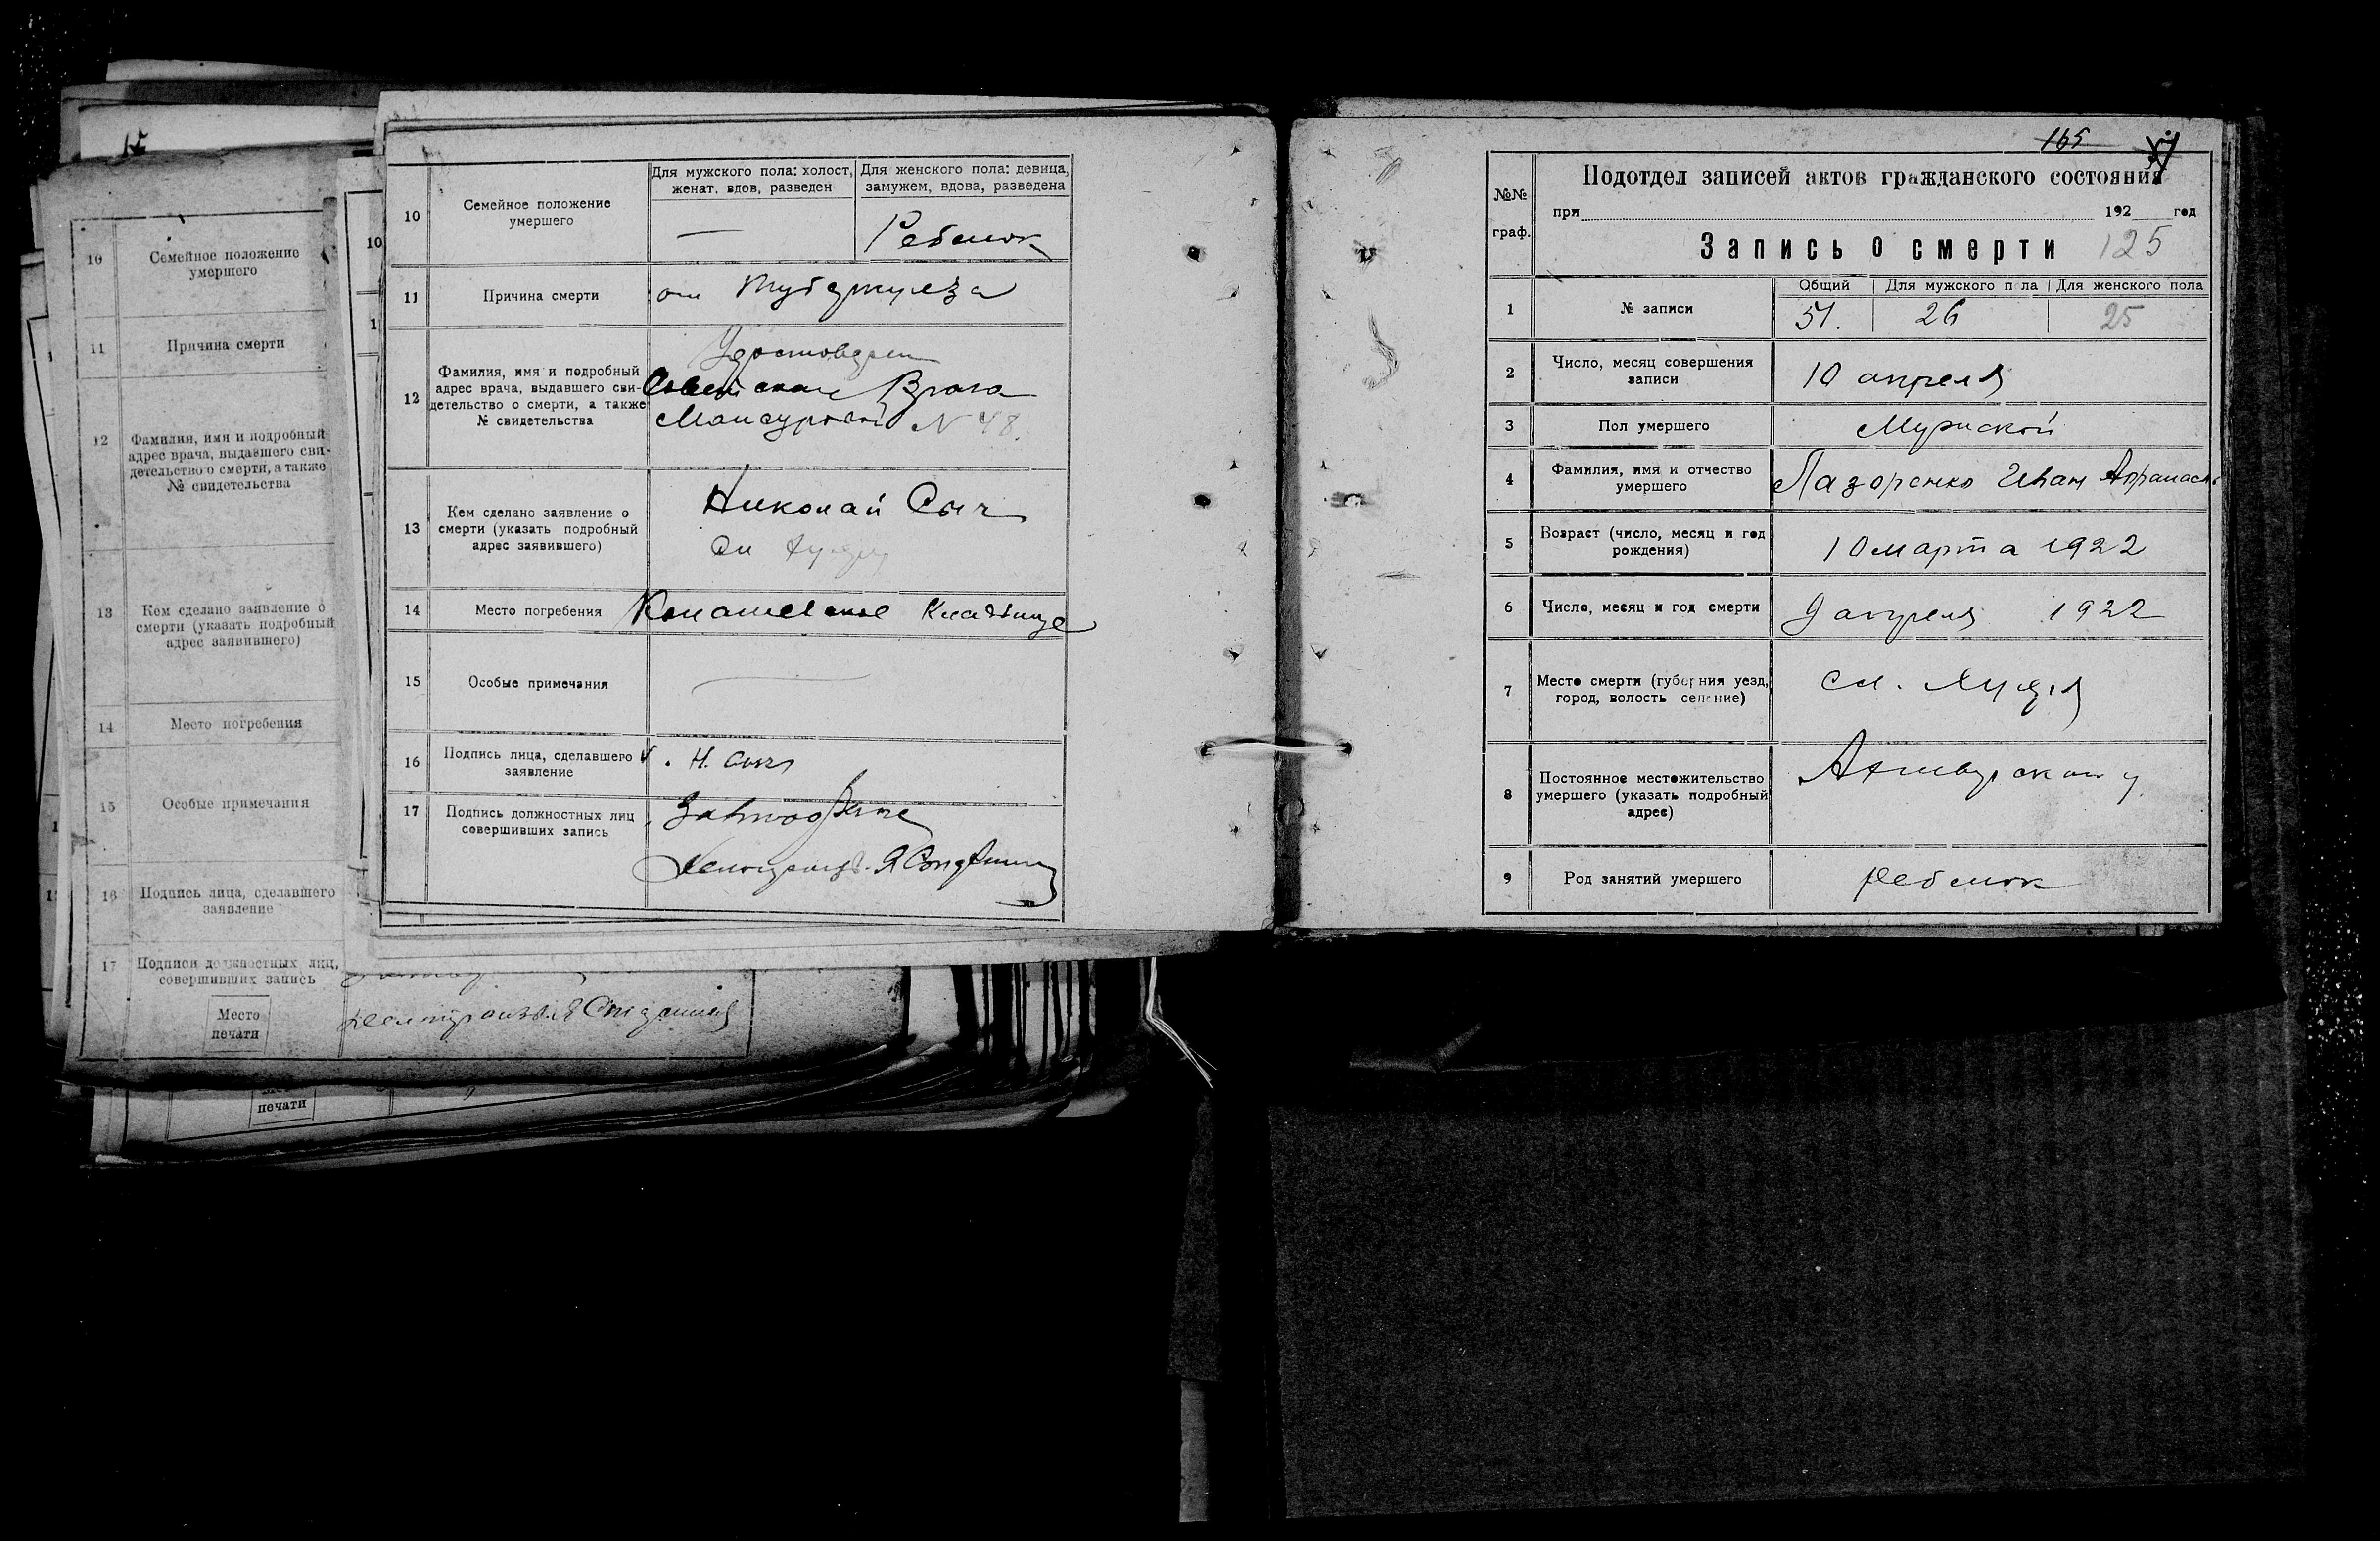 15
10
Семейное положение
умершего
11
Причина смерти
12
Фамилия, имя и подробный
адрес врача, выдавшего сви-
детельство о смерти, а также
№ свидетельства
13
Кем сделано заявление о
смерти (указать подробный
адрес заявившего)
14
Место погребения
15
Особые примечания
16
Подпись лица, сделавшего
заявление
17
Подписи должностных лиц,
совершивших запись
Место
печати
печати
10
Для мужского пола: холост,
женат, вдов, разведен
Для женского пола: девица,
замужем, вдова, разведена
10
Семейное положение
умершего
—
Ребенок
11
Причина смерти
от туберкулеза
12
Фамилия, имя и подробный
адрес врача, выдавшего сви-
детельство о смерти, а также
№ свидетельства
Удостоверен
Врача
N 48.
13
Кем сделано заявление о
смерти (указать подробный
адрес заявившего)
Николай Сыч
14
Место погребения
Кладбище
15
Особые примечания
16
Подпись лица, сделавшего
заявление
Н. Сыч
17
Подпись должностных лиц
совершивших запись
165
№№
граф.
Подотдел записей актов гражданского состояния
при 192 год
Запись о смерти 125
1
№ записи
Общий
Для мужского пола
Для женского пола
51.
26
25
2
Число, месяц совершения
записи
10 апреля
3
Пол умершего
Мужской
4
Фамилия, имя и отчество
умершего
Лазоренко Иван Афанась
5
Возраст (число, месяц и год
рождения)
10 марта 1922
6
Число, месяц и год смерти
9 апреля 1922
7
Место смерти (губерния уезд,
город, волость селение)
сл.
8
Постоянное местожительство
умершего (указать подробный
адрес)
9
Род занятий умершего
ребенок